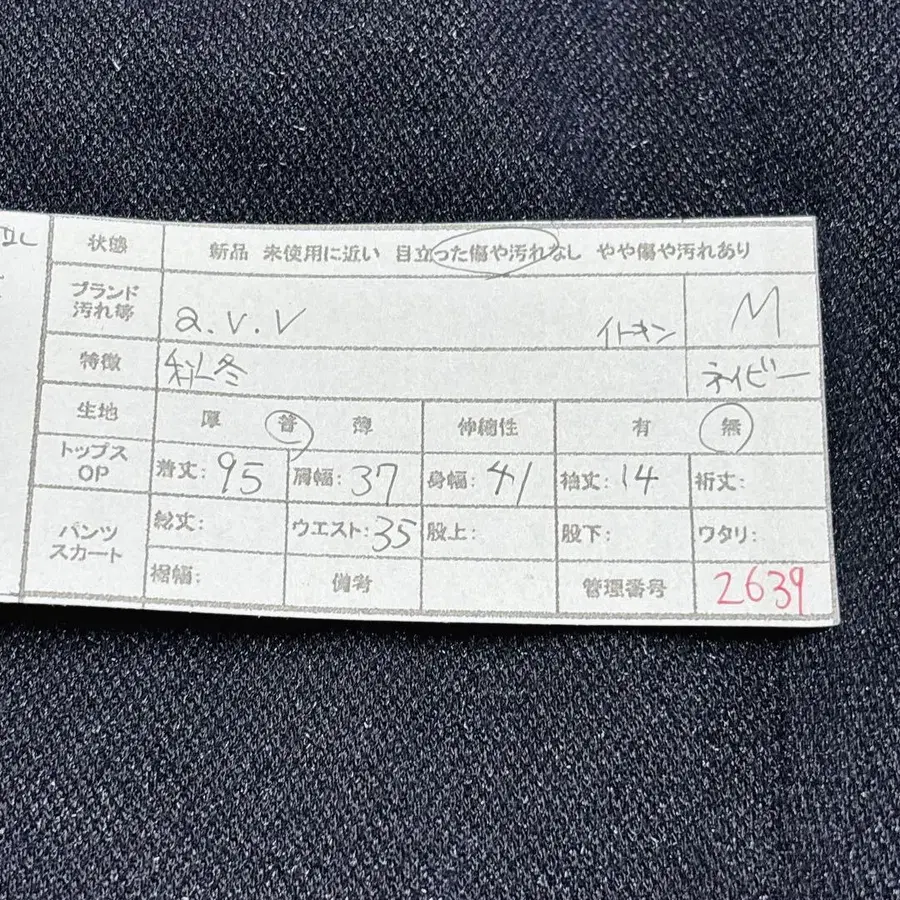 状態 新品 未使用に近い 目立った傷や汚れなし やや傷や汚れあり
ブランド 汚れ等 a.v.v イトキン M
特徴 秋冬 ネイビー
生地 厚 普 薄 伸縮性 有 無
トップス OP 着丈: 95 肩幅: 37 身幅: 41 袖丈: 14 裄丈:
パンツ スカート 総丈: ウエスト: 35 股上: 股下: ワタリ:
裾幅: 備考 管理番号 2639